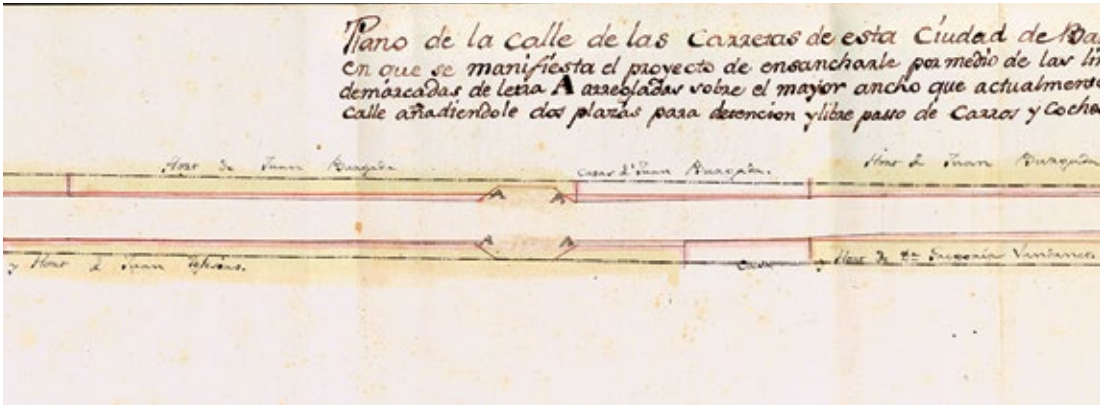 Plano de la calle de las Carretas de esta Ciudad de Ba
en que se manifiesta el proyecto de ensancharle por medio de las lin
demarcadas de letra A arregladas sobre el mayor ancho que actualmente
calle añadiendole dos plazas para detencion y libre passo de Carros y Coche
Hort de Juan Burgada
Casas d'Juan Burgada.
Hort d Juan Burgada
A A
A A
y Hort d Juan
Casa
y Hort de Dn Gregoria